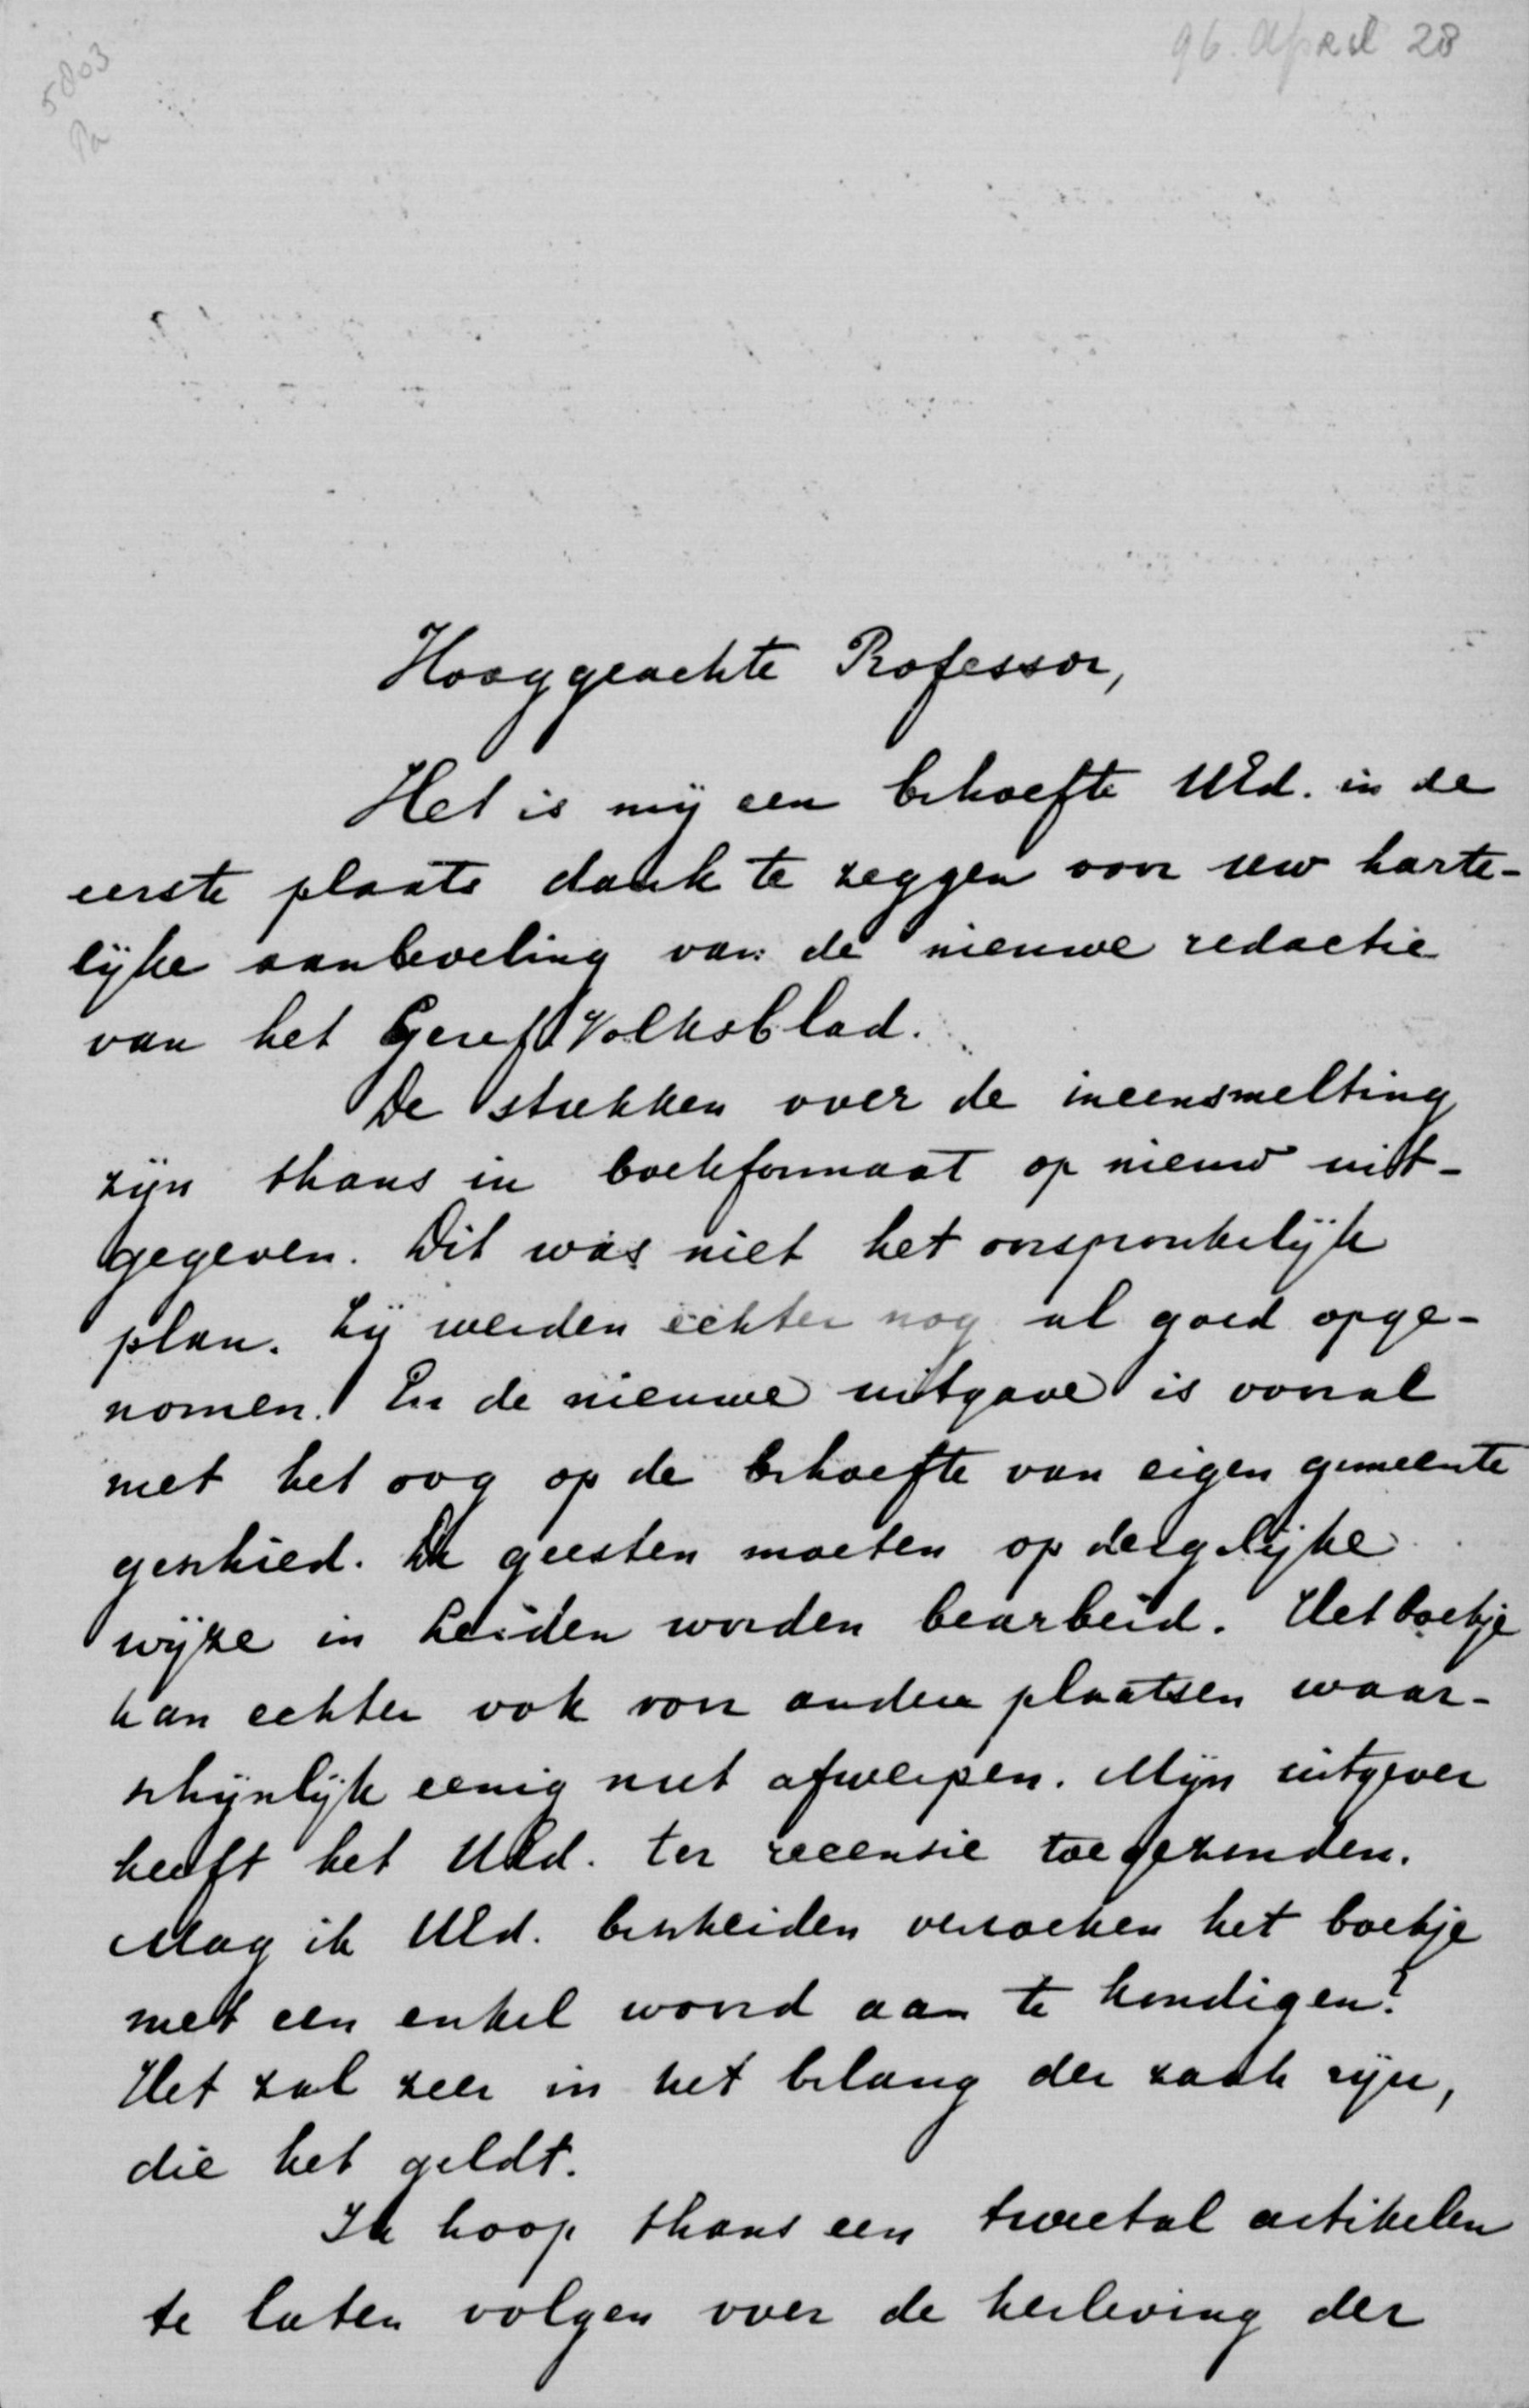 96. April 28
5803
Pa
Hooggeachte Professor,
Het is mij een behoefte UEd. in de
eerste plaats dank te zeggen voor uw harte-
lijke aanbeveling van de nieuwe redactie
van het Geref. Volksblad.
De stukken over de ineensmelting
zijn thans in boekformaat op nieuw uit-
gegeven. Dit was niet het oorspronkelijk
plan. Zij werden echter nog al goed opge-
nomen. En de nieuwe uitgave is vooral
met het oog op de behoefte van eigen gemeente
geschied. De geesten moeten op dergelijke
wijze in Leiden worden bearbeid. Het boekje
kan echter ook voor andere plaatsen waar-
schijnlijk eenig nut afwerpen. Mijn uitgever
heeft het UEd. ter recensie toegezonden.
Mag ik UEd. bescheiden verzoeken het boekje
met een enkel woord aan te kondigen?
Het zal zeer in het belang der zaak zijn,
die het geldt.
Ik hoop thans een tweetal artikelen
te laten volgen over de herleving der